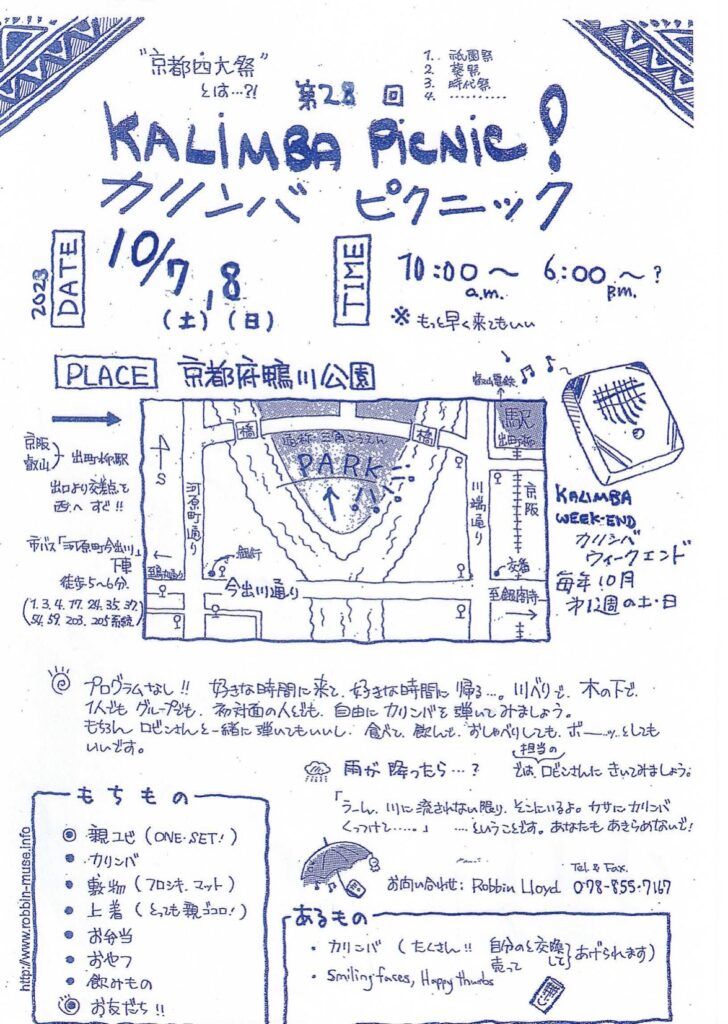 "京都四大祭"
とは…?!
1. 祇園祭
2. 葵祭
3. 時代祭
4. ‥‥‥‥‥
第28回
KALIMBA PICNIC!
カリンバ ピクニック
2023
DATE
10/7, 8
(土)(日)
TIME
10:00〜 6:00〜?
a.m. p.m.
※ もっと早く来てもいい
PLACE 京都府鴨川公園
叡山電鉄
駅
出町柳
橋
橋
通称 三角こうえん
PARK
S
河原町通り
川端通り
京阪
銀行
交番
今出川通り
至烏丸通り
至銀閣寺
京阪
叡山
出町柳駅
出口より交差点を
西へすぐ!!
市バス「河原町今出川」
下車
徒歩5〜6分.
(1. 3. 4. 17. 24. 35. 37.
54. 59. 203. 205系統)
KALIMBA
WEEK-END
カリンバ
ウィークエンド
毎年10月
第2週の土・日
プログラムなし!! 好きな時間に来て、好きな時間に帰る…。川べりで、木の下で、
1人でも グループでも、初対面の人とでも、自由にカリンバを弾いてみましょう。
もちろん ロビンさんと一緒に弾いてもいいし、食べて、飲んで、おしゃべりしても、ボーーッとしても
いいです。
雨が降ったら…?
では、担当のロビンさんに きいてみましょう。
「うーん、川に流されない限り、そこにいるよ。カサにカリンバ
くっつけて……。」 ……ということです。あなたも あきらめないで!
Tel & Fax.
お問い合せ: Robbin Lloyd 078-855-7167
もちもの
親ユビ (ONE-SET!)
カリンバ
敷物 (フロシキ、マット)
上着 (とっても親ゴコロ!)
お弁当
おやつ
飲みもの
お友だち!!
http://www.robbin-muse.info
あるもの
・カリンバ (たくさん!! 自分のと交換して
売って あげられます)
・Smiling faces, Happy thumbs